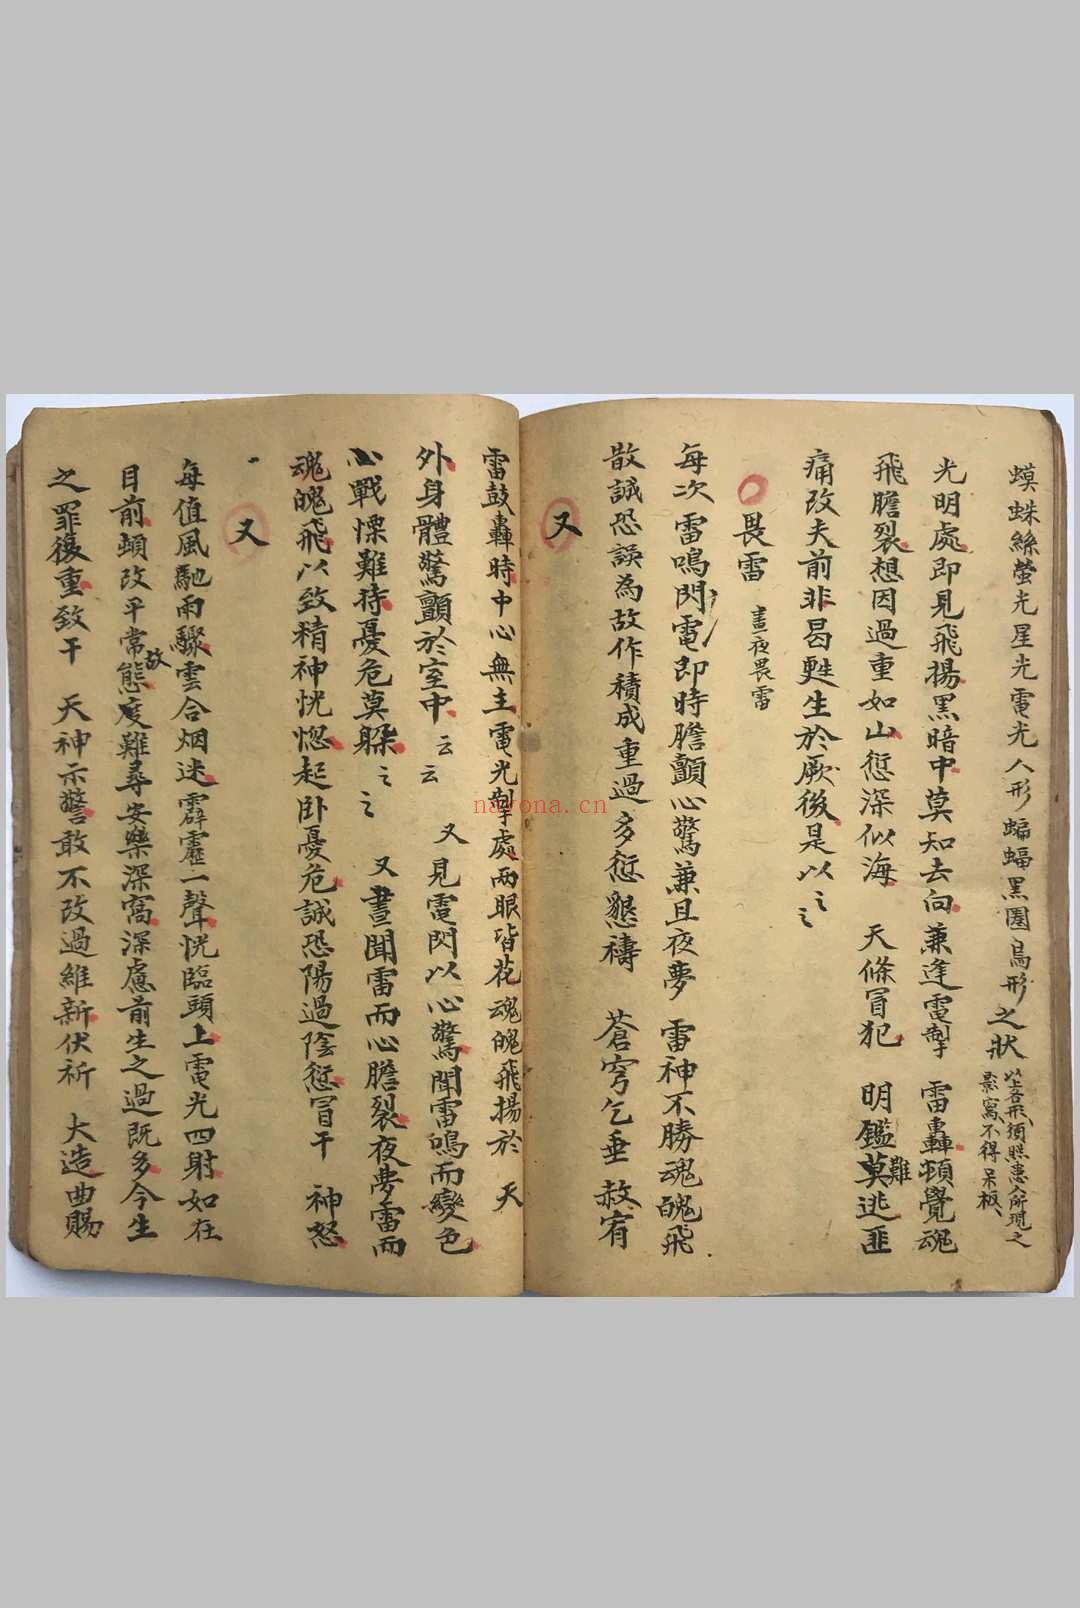 蟆蛛絲螢光星光電光人形蝙蝠黑圈鳥形之狀
以上各形須照患人所現之
影寫不得呆板
光明處即見飛揚黑暗中莫知去向兼逢電掣　雷轟頓覺魂
飛膽裂想因過重如山愆深似海　天條冒犯　明鑑莫難逃匪
痛改夫前非曷甦生於厥後是以之之
畏雷　晝夜畏雷
每次雷鳴閃電即時膽顫心驚兼且夜夢　雷神不勝魂醜飛
散誠恐誤為故作積成重過多愆懇禱　蒼穹乞垂　赦宥
又
雷鼓轟時中心無主電光掣處兩眼皆花魂魄飛揚於　天
外身體驚顫於室中云云　又見電閃以心驚聞雷鳴而變色
心戰慄難待憂危莫躲之之　又晝聞雷而心膽裂夜夢雷而
魂魄飛以致精神恍惚起卧憂危誠恐陽過陰愆冒干　神怒
又
每值風馳雨驟雲合烟迷霹靂一聲恍臨頭上電光四射如在
目前頓改平常故態度難尋安樂深窩深慮前生之過既多今生
之罪復重致干　天神示警敢不改過維新伏祈　大造曲賜
nayona.cn